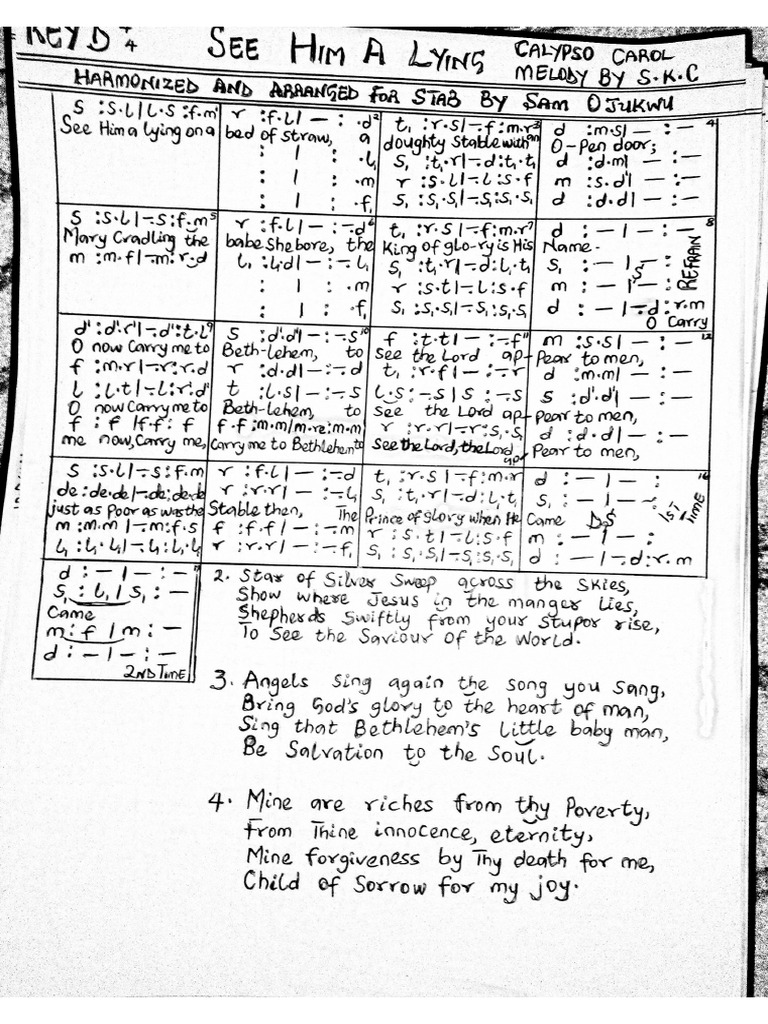 KEY D 4/4 SEE HIM A LYING CALYPSO CAROL
MELODY BY S.K.C
HARMONIZED AND ARRANGED FOR STAB BY SAM OJUKWU
s :s.l|l.s :f.m¹ r :f.l|— : .d² t₁ :r.s|—.f:m.r³ d :m.s|— :— 4
See Him a lying on a bed of straw, a doughty Stable with an O-Pen door;
: | : .l₁ s₁ :t₁.r|—.d:t₁.t₁ d :d.m|— :—
: | : .m r :s.l|—.l:s.f m :s.d'|— :—
: | : .f₁ s₁ :s₁.s₁|—.s₁:s₁.s₁ d :d.d|— :—
s :s.l|—.s:f.m⁵ r :f.l|— :—.d⁶ t₁ :r.s|—.f:m.r⁷ d :—|— :— 8
Mary Cradling the babe She bore, the King of glo-ry is His Name.
m :m.f|—.m:r.d l₁ :l₁.d|— :—.l₁ s₁ :t₁.r|—.d:l₁.t₁ s₁ :—|— :— S
: | : .m r :s.t|—.l:s.f m :—|— :— REFRAIN
: | : .f₁ s₁ :s₁.s₁|—.s₁:s₁.s₁ d :—|—.d:r.m
O Carry
d' :d'.r'|—.d':t.l⁹ s :d'.d'|— :—.s¹⁰ f :t.t|— :—.f¹¹ m :s.s|— :— 12
O now Carry me to Beth-lehem, to See the Lord ap- Pear to men,
f :m.r|—.r:r.d r :d.d|— :—.d t₁ :r.f|— :—.r d :m.m|— :—
l :l.t|—.l:r.d' t :l.s|— :—.s l.s :—.s|s :—.s s :d'.d'|— :—
O now Carry me to Beth-lehem, to See the Lord ap- Pear to men,
f : f |f.f : f f.f :m.m|m.re:m.m r :r.r|—.r:s₁.s₁ d :d.d|— :—
me now, Carry me, Carry me to Bethlehem to See the Lord, the Lord ap- Pear to men,
s :s.l|—.s:f.m r :f.l|— :—.d t₁ :r.s|—.f:m.r d :—|— :— 16
de:de.de|—.de:de.de r :r.r|— :—.l₁ s₁ :t₁.r|—.d:l₁.t₁ s₁ :—|— :— 1ST TIME
just as Poor as was the Stable then, The Prince of glory when He Came D.S
m :m.m|—.m:f.s f :f.f|— :—.m r :s.t|—.l:s.f m :—|— :—
l₁ :l₁.l₁|—.l₁:l₁.l₁ r :r.r|— :—.f₁ s₁ :s₁.s₁|—.s₁:s₁.s₁ d :—|—.d:r.m
d :—|— :—
s₁ :l₁|s₁ :—
Came
m :f|m :—
d :—|— :—
2ND TIME
2. Star of Silver Sweep across the Skies,
Show where Jesus in the manger lies,
Shepherds Swiftly from your Stupor rise,
To See the Saviour of the World.
3. Angels Sing again the Song you Sang,
Bring God's glory to the heart of man,
Sing that Bethlehem's little baby man,
Be Salvation to the Soul.
4. Mine are riches from thy Poverty,
From Thine innocence, eternity,
Mine forgiveness by Thy death for me,
Child of Sorrow for my joy.